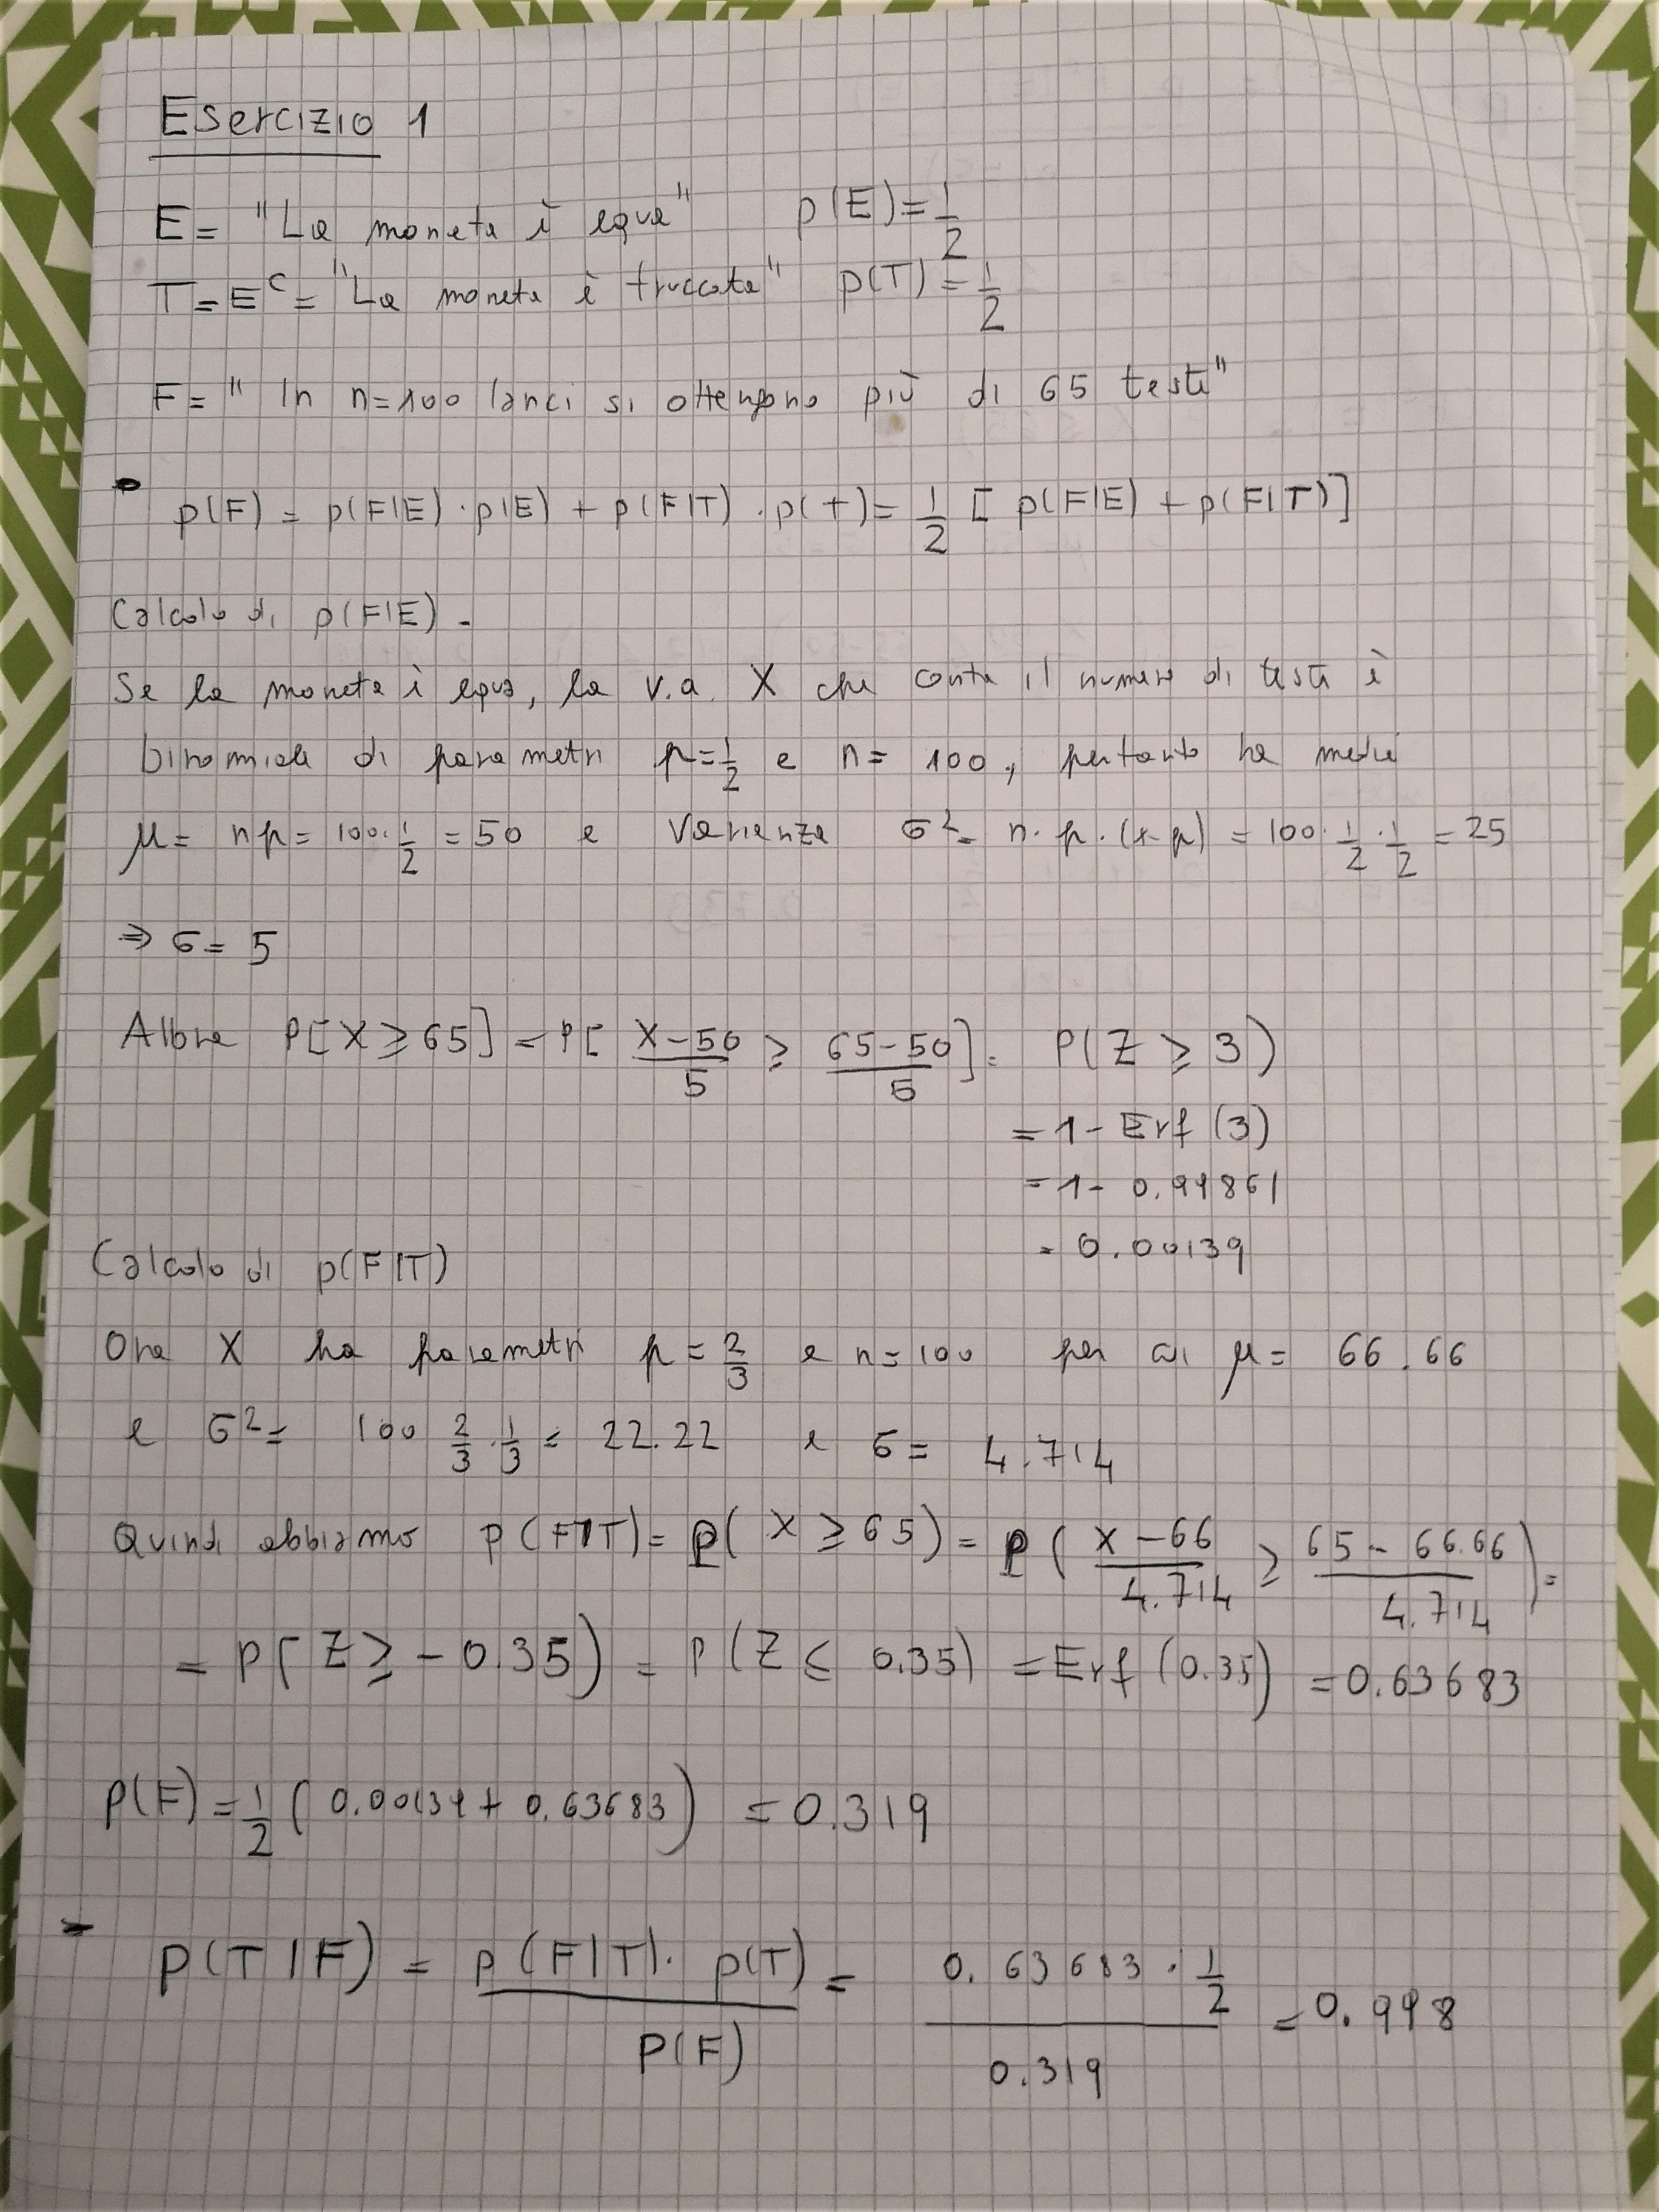 Esercizio 1
E = "La moneta è equa" p(E) = 1/2
T = E^C = "La moneta è truccata" p(T) = 1/2
F = " In n=100 lanci si ottengono più di 65 teste"
p(F) = p(F|E) · p(E) + p(F|T) · p(T) = 1/2 [ p(F|E) + p(F|T) ]
Calcolo di p(F|E) -
Se la moneta è equa, la v.a. X che conta il numero di teste è
binomiale di parametri p = 1/2 e n = 100, pertanto ha media
μ = np = 100 · 1/2 = 50 e varianza σ² = n · p · (1-p) = 100 · 1/2 · 1/2 = 25
⇒ σ = 5
Allora P[X ≥ 65] = P[ (X-50)/5 ≥ (65-50)/5 ] = P(Z ≥ 3)
= 1 - Erf (3)
= 1 - 0.99861
= 0.00139
Calcolo di p(F|T)
Ora X ha parametri p = 2/3 e n = 100 per cui μ = 66.66
e σ² = 100 2/3 · 1/3 = 22.22 e σ = 4.714
Quindi abbiamo p(F|T) = P( X ≥ 65) = P( (X-66)/4.714 ≥ (65-66.66)/4.714 ) =
= P[ Z ≥ -0.35) = P(Z ≤ 0.35) = Erf (0.35) = 0.63683
P(F) = 1/2 ( 0.00139 + 0.63683) = 0.319
p(T|F) = p(F|T) · p(T) / P(F) = 0.63683 · 1/2 / 0.319 = 0.998